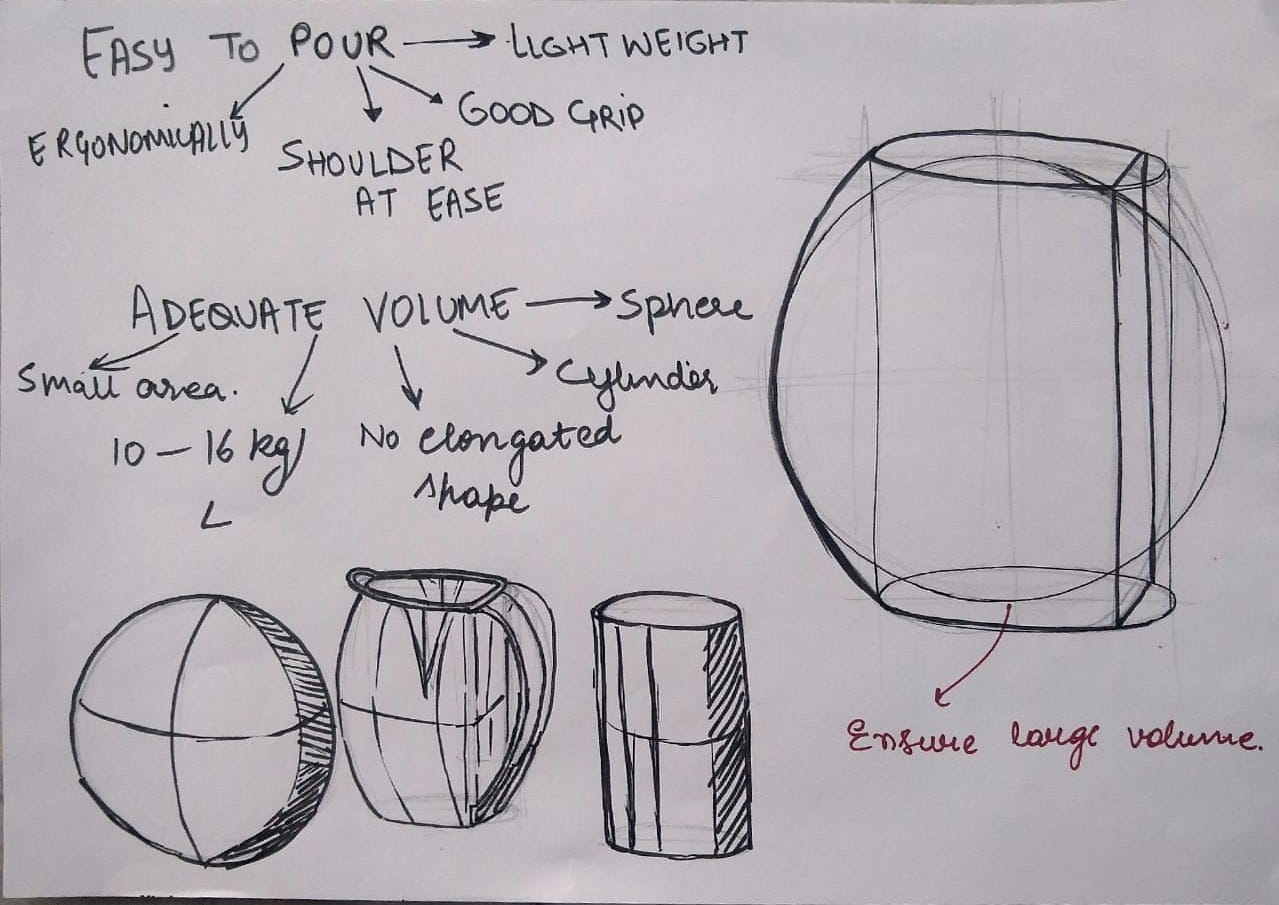 EASY TO POUR → LIGHT WEIGHT
ERGONOMICALLY
GOOD GRIP
SHOULDER
AT EASE
ADEQUATE VOLUME → Sphere
Small area.
Cylinder
10 – 16 kg/
L
No elongated
shape
Ensure large volume.